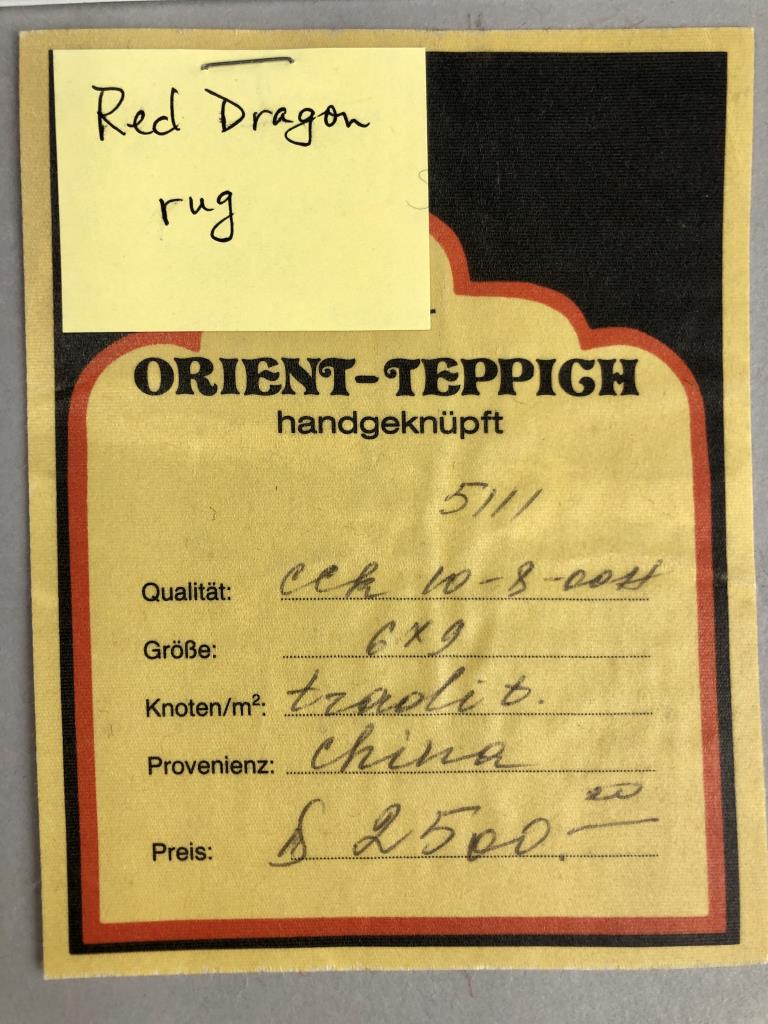 Red Dragon
rug
ORIENT-TEPPICH
handgeknüpft
5111
Qualität: 10-8-00
Größe: 6x9
Knoten/m²: tradit.
Provenienz: China
Preis: $ 2500.00